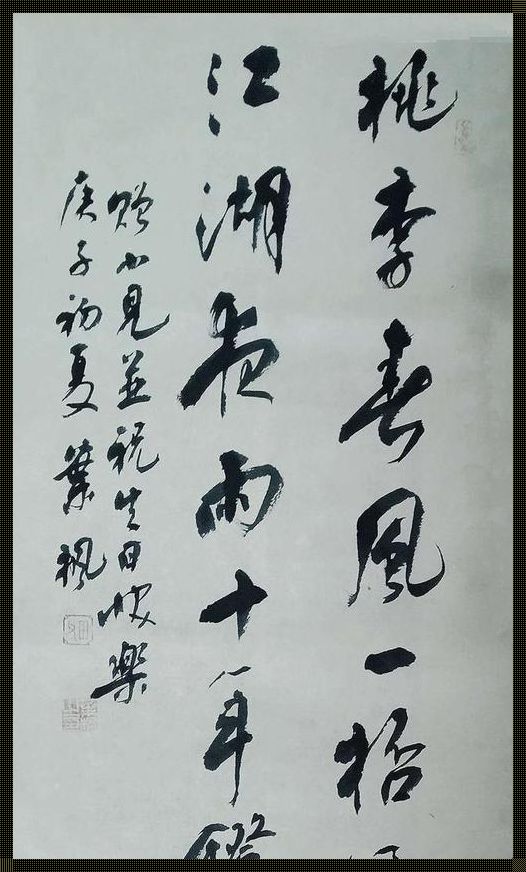 桃李春風一桮
江湖夜雨十年燈
贈小見並祝生日快樂
庚子初夏 葉楓